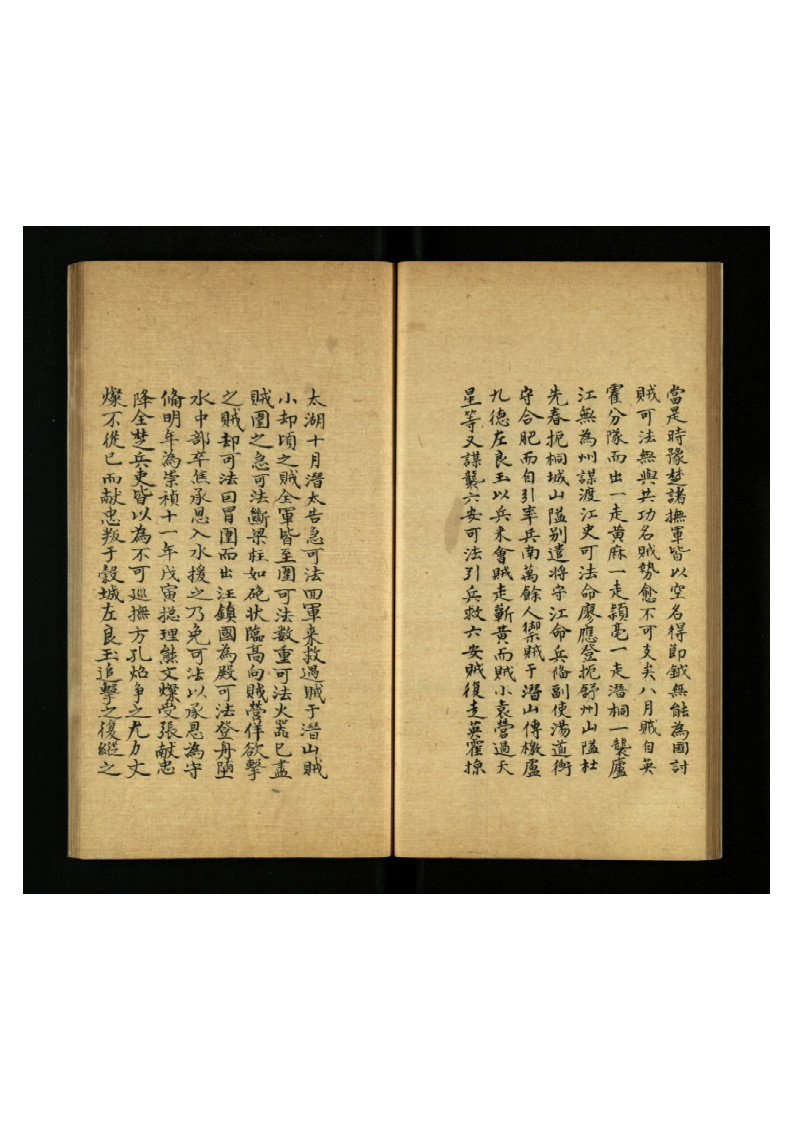 當是時豫楚諸撫軍皆以空名得節鉞無能為國討
賊可法無與共功名賊勢愈不可支矣八月賊自英
霍分隊而出一走黃麻一走潁亳一走潛桐一襲廬
江無為州謀渡江史可法命廖應登扼舒州山隘杜
先春扼桐城山隘别遣將守江命兵俻副使湯道衡
守合肥而自引率兵南萬餘人禦賊于潛山傳檄盧
九德左良玉以兵来會賊走蘄黃而賊小袁營過天
星等又謀襲六安可法引兵救六安賊復走英霍掠
太湖十月潛太告急可法囬軍来救遇賊于潛山賊
小却頃之賊全軍皆至圍可法數重可法火器已盡
賊圍之急可法斷梁柱如砲状臨高向賊營佯欲擊
之賊却可法因冒圍而出汪鎮國為殿可法登舟墮
水中部卒焦承恩入水援之乃免可法以承恩為守
俻明年為崇禎十一年戊寅揔理熊文燦受張献忠
降全楚兵吏皆以為不可廵撫方孔炤争之尤力文
燦不從已而献忠叛于穀城左良玉追擊之復縱之